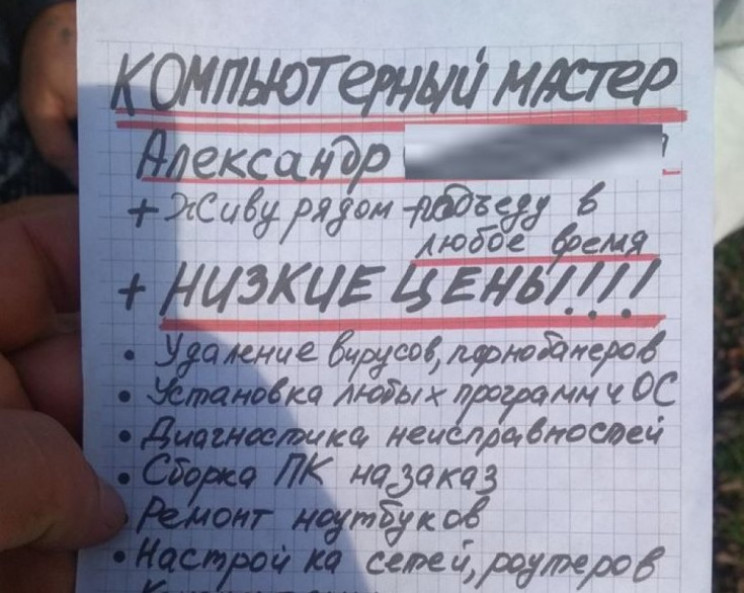 КОМПЬЮТЕРНЫЙ МАСТЕР
Александр
+ Живу рядом - подъеду в
любое время
+ НИЗКИЕ ЦЕНЫ!!!!
• Удаление вирусов, порнобанеров
• Установка любых программ и ОС
• Диагностика неисправностей
• Сборка ПК на заказ
• Ремонт ноутбуков
• Настройка сетей, роутеров